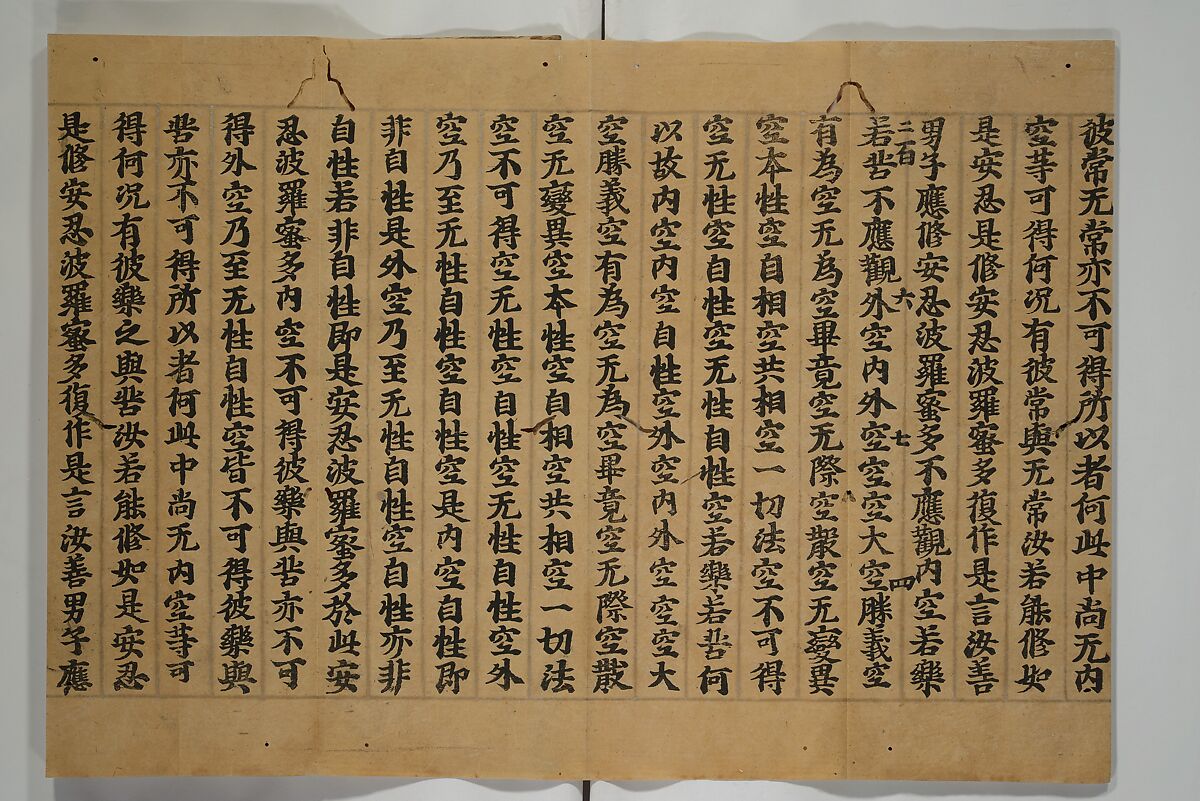 彼常无常亦不可得所以者何此中尚无内
空等可得何況有彼常與无常汝若能修如
是安忍是修安忍波羅蜜多復作是言汝善
男子應修安忍波羅蜜多不應觀内空若樂
二百 六 七 四
若苦不應觀外空内外空空空大空勝義空
有為空无為空畢竟空无際空散空无變異
空本性空自相空共相空一切法空不可得
空无性空自性空无性自性空若樂若苦何
以故内空内空自性空外空内外空空空大
空勝義空有為空无為空畢竟空无際空散
空无變異空本性空自相空共相空一切法
空不可得空无性空自性空无性自性空外
空乃至无性自性空自性空是内空自性即
非自性是外空乃至无性自性空自性亦非
自性若非自性即是安忍波羅蜜多於此安
忍波羅蜜多内空不可得彼樂與苦亦不可
得外空乃至无性自性空皆不可得彼樂與
苦亦不可得所以者何此中尚无内空等可
得何況有彼樂之與苦汝若能修如是安忍
是修安忍波羅蜜多復作是言汝善男子應